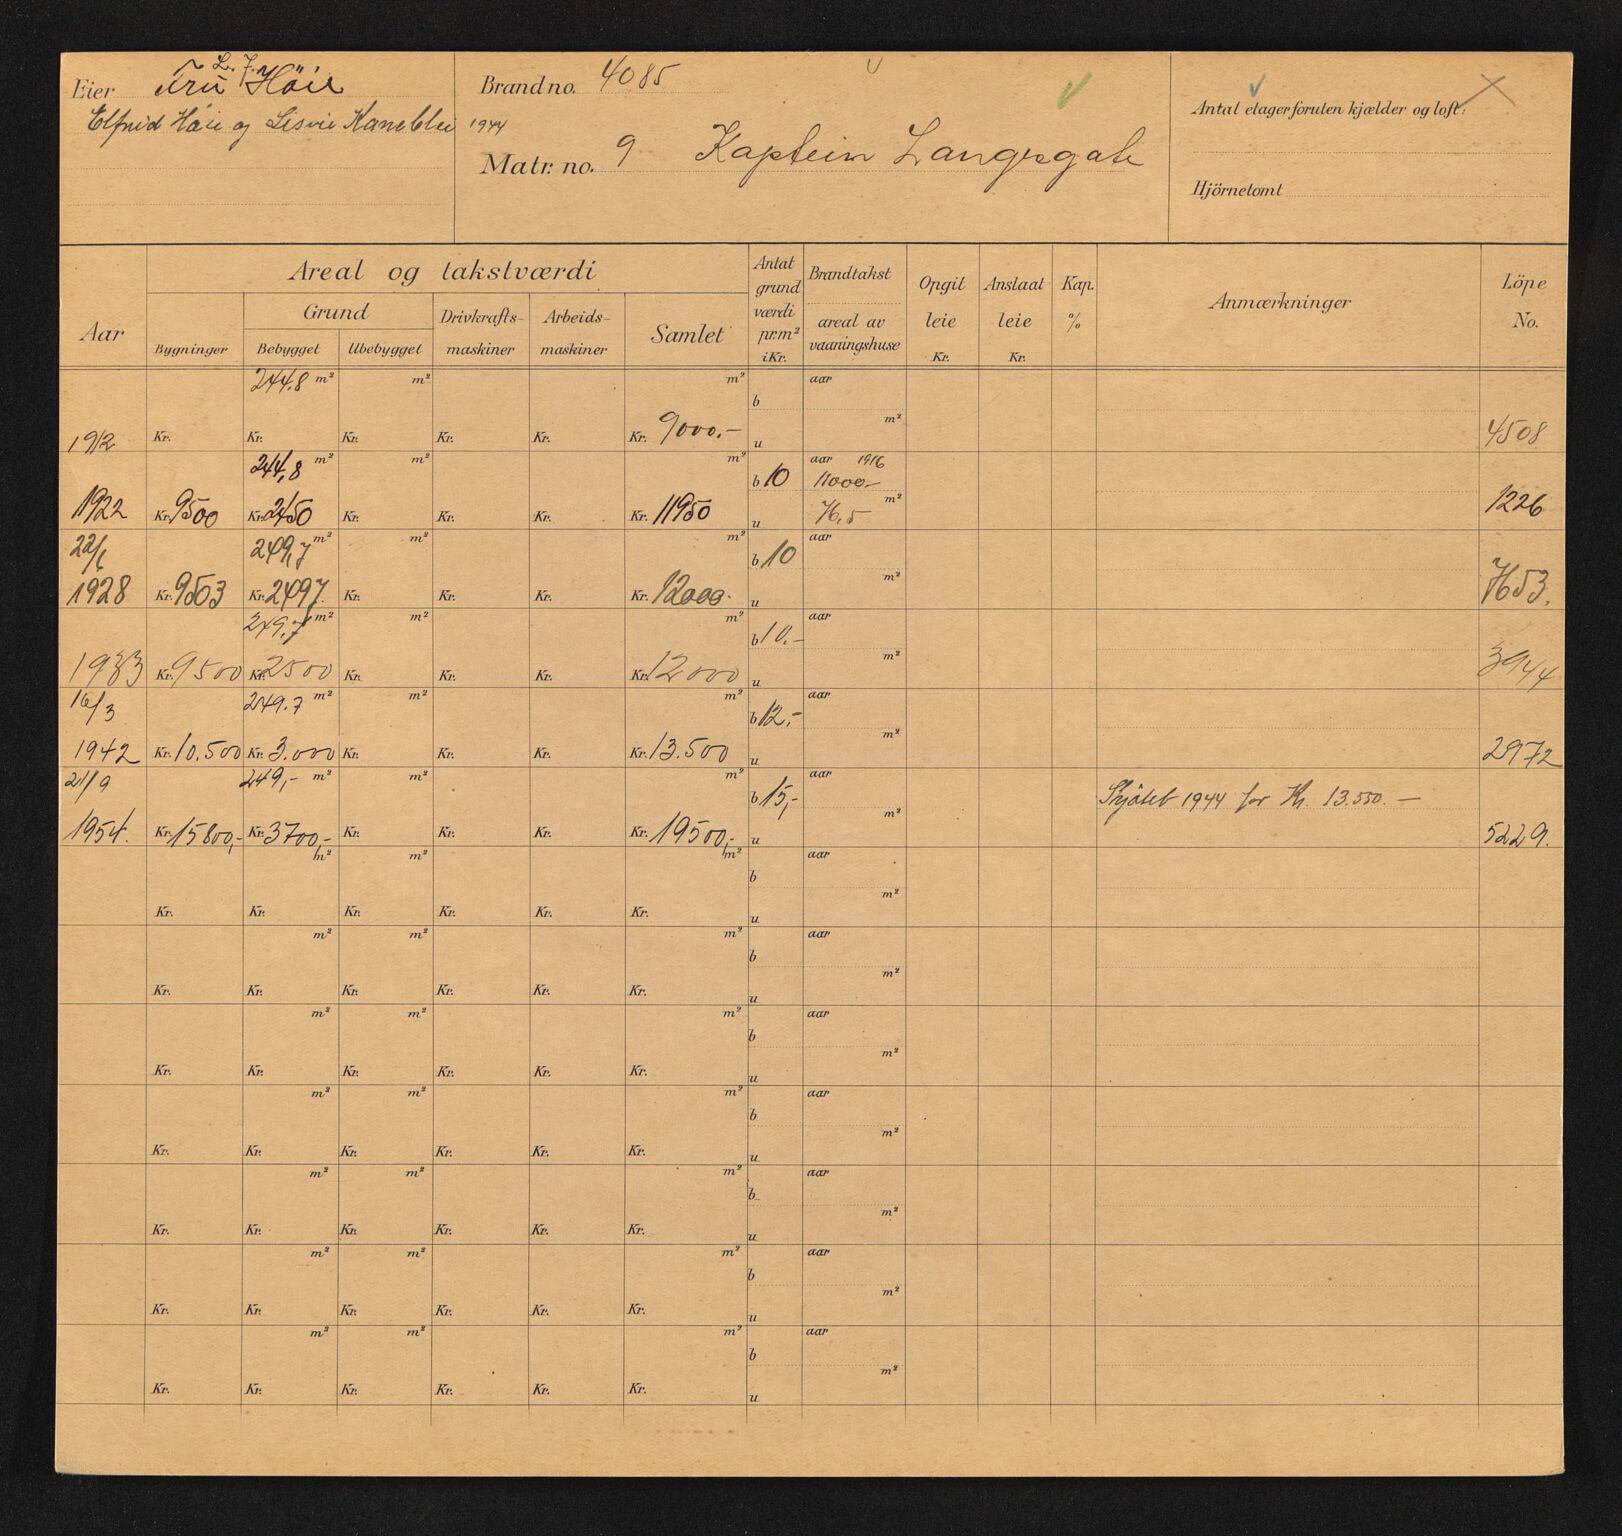 Eier Fru L. J. Höie
Elfrid Höie og 1944
Brand no. 4085
Matr. no. 9 Kaptein Langesgate
Antal etager foruten kjælder og loft:
Hjörnetomt
Aar
Areal og takstværdi
Bygninger
Grund
Bebygget Ubebygget
Drivkrafts-
maskiner
Arbeids-
maskiner
Samlet
Antat
grund
værdi
pr. m²
i Kr.
Brandtakst
areal av
vaaningshuse
Opgit
leie
Kr.
Anslaat
leie
Kr.
Kap.
%
Anmærkninger
Löpe
No.
244.8 m² m² m² aar
b
m²
1912 Kr. Kr. Kr. Kr. Kr. Kr. 9000.- u 4508
244,8 m² m² m² b 10 aar 1916
11000.-
m²
1922 Kr. 9500 Kr. 2450 Kr. Kr. Kr. Kr. 11950 u 76,5 1226
22/6 249,7 m² m² m² b 10 aar
m²
1928 Kr. 9503 Kr. 2497 Kr. Kr. Kr. Kr. 12000.- u 7653.
249,7 m² m² m² b 10.- aar
m²
1933 Kr. 9500 Kr. 2500 Kr. Kr. Kr. Kr. 12000 u 3944
16/3 249.7 m² m² m² b 12,- aar
m²
1942 Kr. 10.500 Kr. 3.000 Kr. Kr. Kr. Kr. 13.500 u 2972
21/9 249,- m² m² m² b 15,- aar Skjötet 1944 for Kr. 13.550.-
m²
1954. Kr. 15800,- Kr. 3700,- Kr. Kr. Kr. Kr. 19500,- u 5229.
m² m² m² aar
b
m²
Kr. Kr. Kr. Kr. Kr. Kr. u
m² m² m² aar
b
m²
Kr. Kr. Kr. Kr. Kr. Kr. u
m² m² m² aar
b
m²
Kr. Kr. Kr. Kr. Kr. Kr. u
m² m² m² aar
b
m²
Kr. Kr. Kr. Kr. Kr. Kr. u
m² m² m² aar
b
m²
Kr. Kr. Kr. Kr. Kr. Kr. u
m² m² m² aar
b
m²
Kr. Kr. Kr. Kr. Kr. Kr. u
m² m² m² aar
b
m²
Kr. Kr. Kr. Kr. Kr. Kr. u